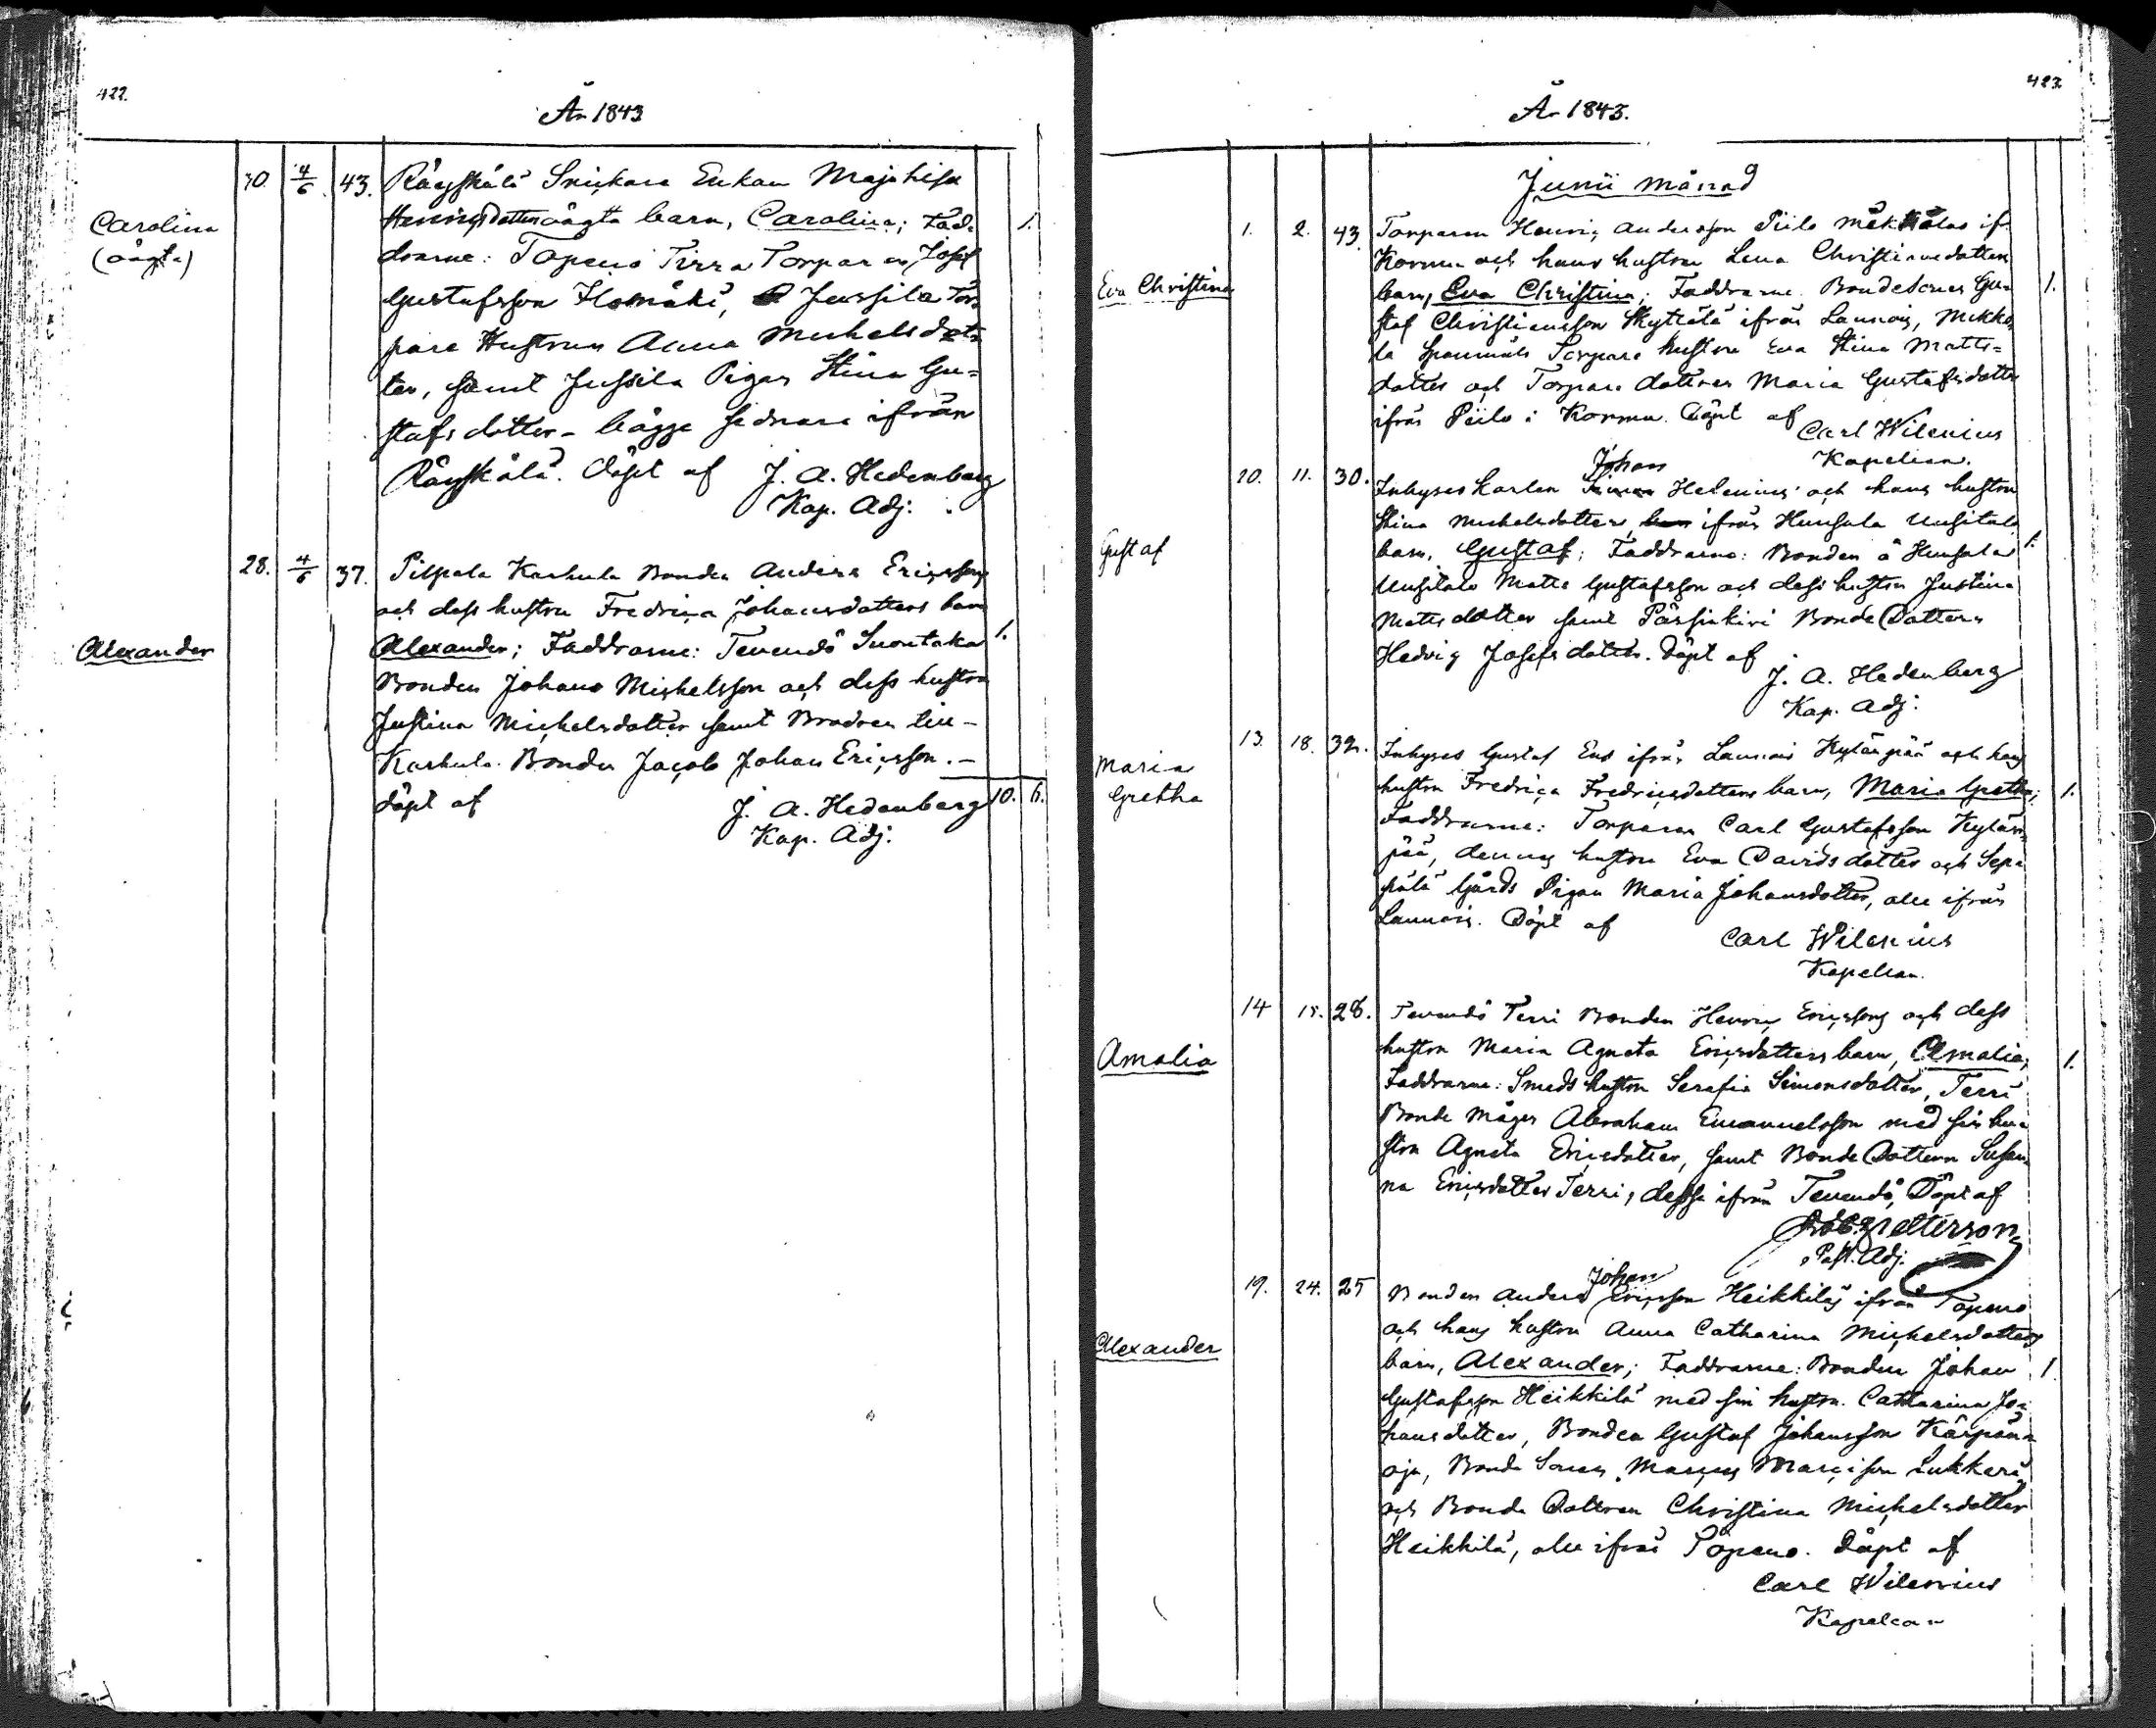 422.
År 1843
30. 4/6. 43. Räyskälä Snickare Enkan Maja Lisa
Carolina
(oägta)
Henricsdotters oägta barn, Carolina; Fad-
drarne: Topeno Tirra Torparen Josef
Gustafsson Homäki, Jussila Tor-
pare Hustrun Anna Michelsdot-
ter, samt Jussila Pigan Stina Gu-
stafsdotter - bägge sednare ifrån
Räyskälä. Döpt af J. A. Hedenberg
Kap. Adj.
28. 4/6 37. Pilpala Karhula Bonden Anders Ericssons
och dess hustru Fredrica Johansdotters barn
Alexander
Alexander; Faddrarne: Tevendö Suontaka 1.
Bonden Johan Michelsson och dess hustru
Justina Michelsdotter samt Brodren till
Karhula Bonden Jacob Johan Ericsson. -
döpt af J. A. Hedenberg 10. 6.
Kap. Adj.
423.
År 1843.
Junii månad
1. 2. 43. Torparen Henric Andersson Piilo Mäkkälas if.
Kormu och hans hustru Lena Christiansdotters
Eva Christina
barn, Eva Christina; Faddrarne Bondesonen Gu- 1.
staf Christiansson Skyttälä ifrån Launois, Mikko
la Torpare hustru Eva Stina Matts-
dotter och Torpare dottren Maria Gustafsdotter
ifrån Piilo i Kormu. Döpt af Carl Wilenius
Kapelian.
Johan
10. 11. 30. Inhyses karlen Helenius och hans hustru
Stina Michelsdotters ifrån Hunsala Uusitalo
Gustaf
barn, Gustaf; Faddrarne: Bonden å Hunsala 1.
Uusitalo Matts Gustafsson och dess hustru Justina
Mattsdotter samt Pärsinkivi Bonde Dottern
Hedvig Josefsdotter. Döpt af
J. A. Hedenberg
Kap. Adj.
13. 18. 32. Inhyses Gustaf Ens ifrån Launois Kylänpää och hans
Maria
Gretha
hustru Fredrica Fredricsdotters barn, Maria Gretha; 1.
Faddrarne: Torparen Carl Gustafsson Kylän-
pää, dennes hustru Eva Davidsdotter och Sep-
pälä Gårds Pigan Maria Johansdotter, alle ifrån
Launois. Döpt af Carl Wilenius
Kapelian.
14 18. 28. Tevendö Terri Bonden Henric Ericssons och dess
Amalia
hustru Maria Agneta Ericsdotters barn, Amalia; 1.
Faddrarne: Smeds hustru Serafia Simonsdotter, Terri
Bonde mågen Abraham Emanuelsson med sin hu-
stru Agneta Ericsdotter, samt Bonde Dottern Susan-
na Ericsdotter Terri, dessa ifrån Tevendö, Döpt af
Petterson
Past. Adj.
Johan
19. 24. 25 Bonden Anders Ericsson Heikkiläs ifrån Topeno
och hans hustru Anna Catharina Michelsdotters
Alexander
barn, Alexander; Faddrarne: Bonden Johan 1
Gustafsson Heikkilä med sin hustru Catharina Jo-
hansdotter, Bonden Gustaf Johansson Kärpän-
oja, Bonde Sonen Marcus Marcisson Lukkari
och Bonde Dottren Christina Michelsdotter
Heikkilä, alle ifrån Topeno. Döpt af
Carl Wilenius
Kapelian